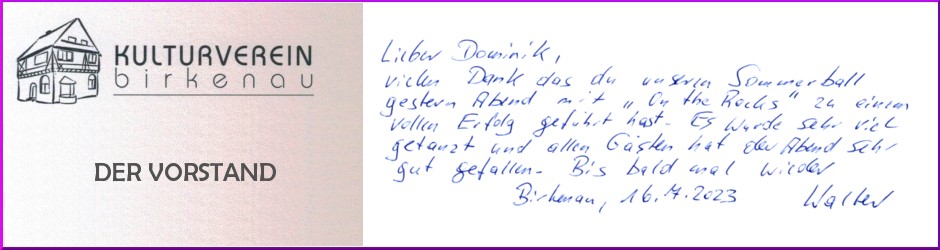 KULTURVEREIN
birkenau
DER VORSTAND
Lieber Dominik,
vielen Dank das du unseren Sommerball
gestern Abend mit „On the Rocks" zu einem
vollen Erfolg geführt hast. Es wurde sehr viel
getanzt und allen Gästen hat der Abend sehr
gut gefallen. Bis bald mal wieder
Birkenau, 16.7.2023 Walter